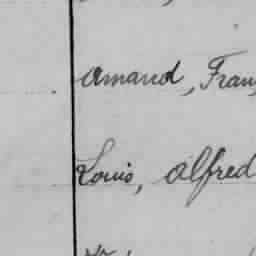 Amand, Fran
Louis, Alfred